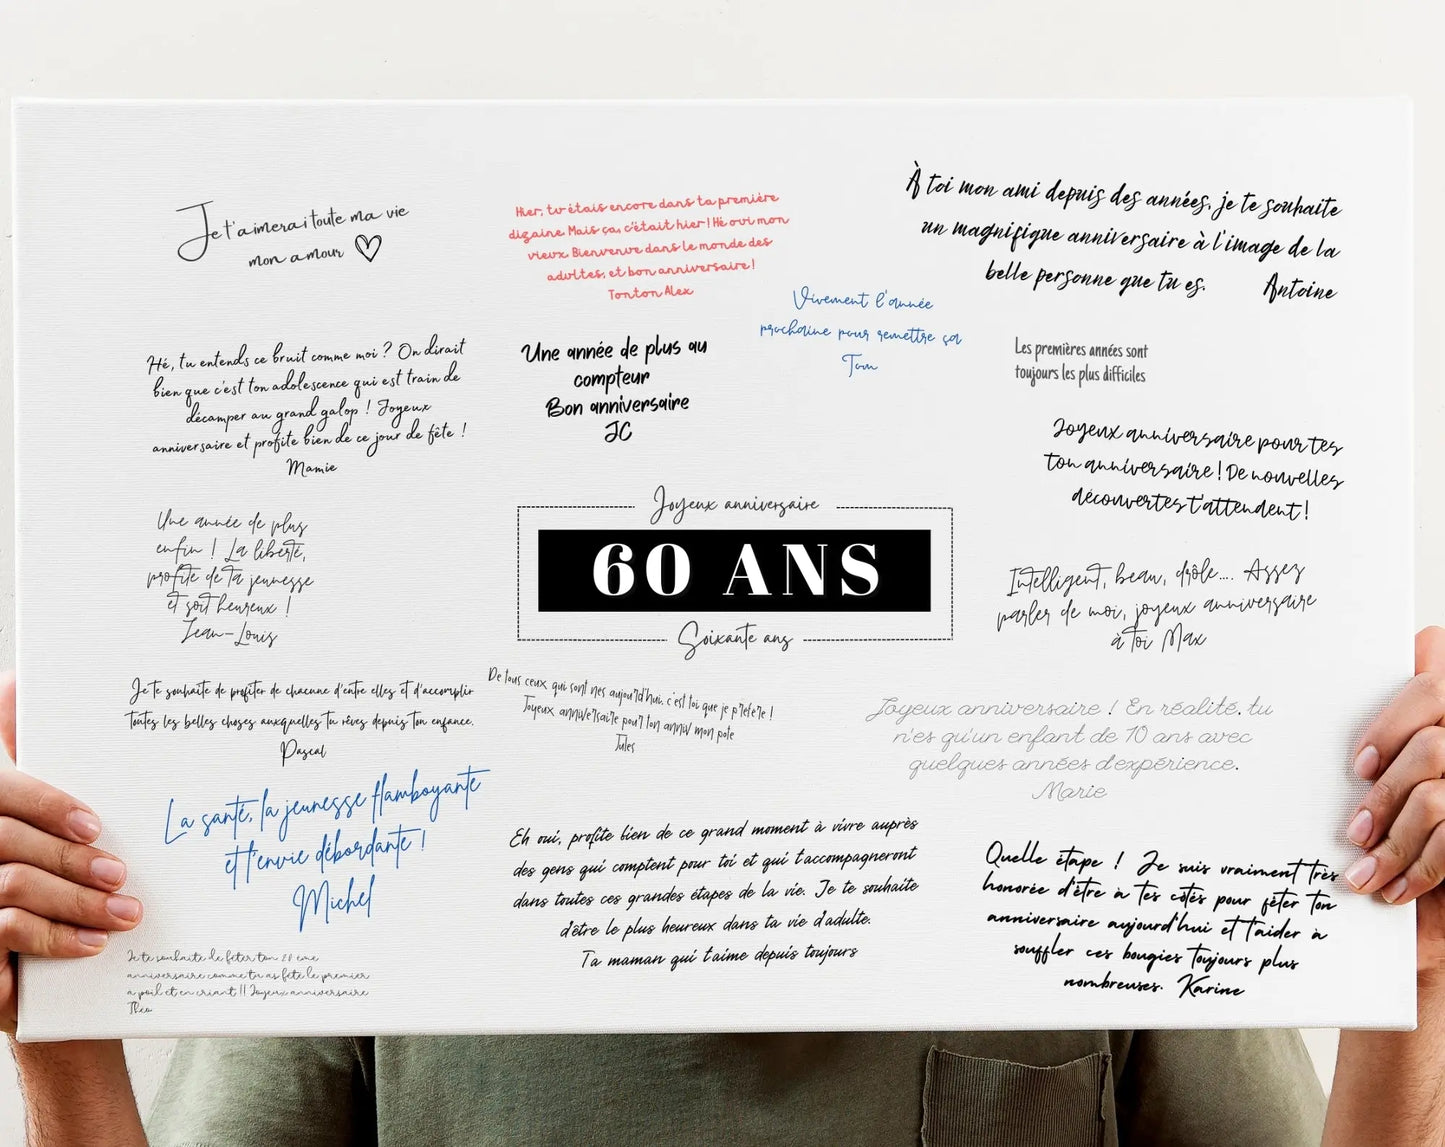 Je t'aimerai toute ma vie
mon amour
Hier, tu étais encore dans ta première
dizaine. Mais ça, c'était hier ! Hé oui mon
vieux. Bienvenue dans le monde des
adultes, et bon anniversaire !
Tonton Alex
À toi mon ami depuis des années, je te souhaite
un magnifique anniversaire à l'image de la
belle personne que tu es. Antoine
Vivement l'année
prochaine pour remettre ça
Tom
Hé, tu entends ce bruit comme moi ? On dirait
bien que c'est ton adolescence qui est train de
décamper au grand galop ! Joyeux
anniversaire et profite bien de ce jour de fête !
Mamie
Une année de plus au
compteur
Bon anniversaire
JC
Les premières années sont
toujours les plus difficiles
Joyeux anniversaire pour tes
ton anniversaire ! De nouvelles
découvertes t'attendent !
Une année de plus
enfin ! La liberté,
profite de ta jeunesse
et soit heureux !
Jean-Louis
Joyeux anniversaire
60 ANS
Soixante ans
Intelligent, beau, drôle.... Assez
parler de moi, joyeux anniversaire
à toi Max
Je te souhaite de profiter de chacune d'entre elles et d'accomplir
toutes les belles choses auxquelles tu rêves depuis ton enfance.
Pascal
De tous ceux qui sont nés aujourd'hui, c'est toi que je préfère !
Joyeux anniversaire pour ton anniv mon pote
Jules
Joyeux anniversaire ! En réalité, tu
n'es qu'un enfant de 10 ans avec
quelques années d'expérience.
Marie
La santé, la jeunesse flamboyante
et l'envie débordante !
Michel
Eh oui, profite bien de ce grand moment à vivre auprès
des gens qui comptent pour toi et qui t'accompagneront
dans toutes ces grandes étapes de la vie. Je te souhaite
d'être le plus heureux dans ta vie d'adulte.
Ta maman qui t'aime depuis toujours
Quelle étape ! Je suis vraiment très
honorée d'être à tes côtés pour fêter ton
anniversaire aujourd'hui et t'aider à
souffler ces bougies toujours plus
nombreuses. Karine
Je te souhaite de fêter ton 20 ème
anniversaire comme tu as fêté le premier
a poil et en criant !! Joyeux anniversaire
Théo